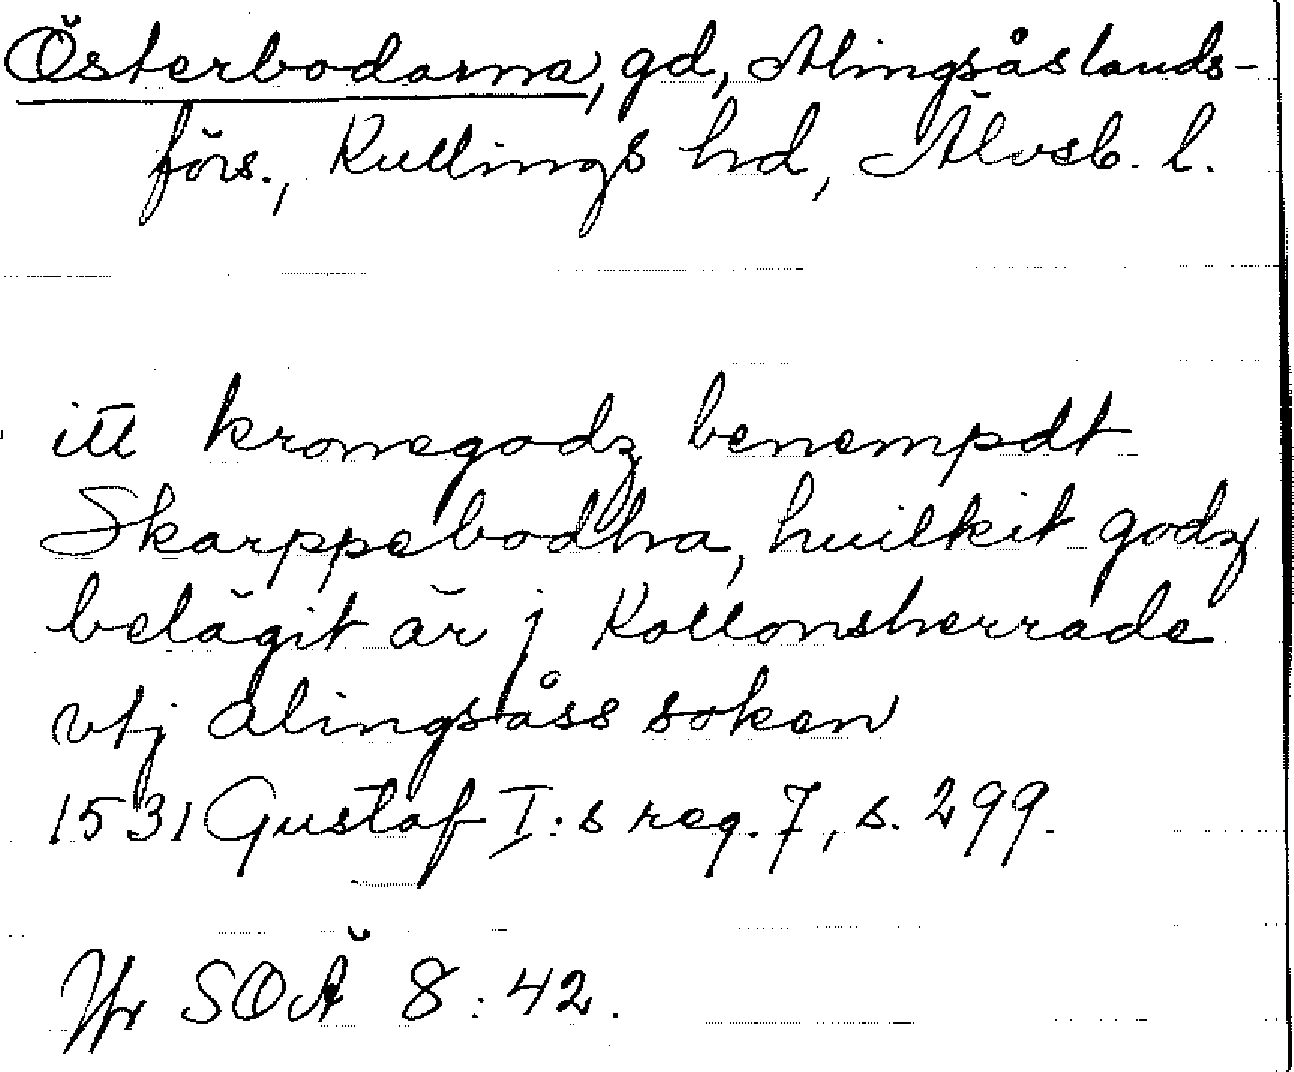 Österbodarna, gd, Alingsås lands-
förs., Kullings hd, Älvsb. l.
itt kronegodz benempdt
Skarppebodha, huilkit godz
belägit är j Kollonsherrade
vtj alingsåss soken
1531 Gustaf I:s reg. 7, s. 299.
Jfr SOÄ 8:42.